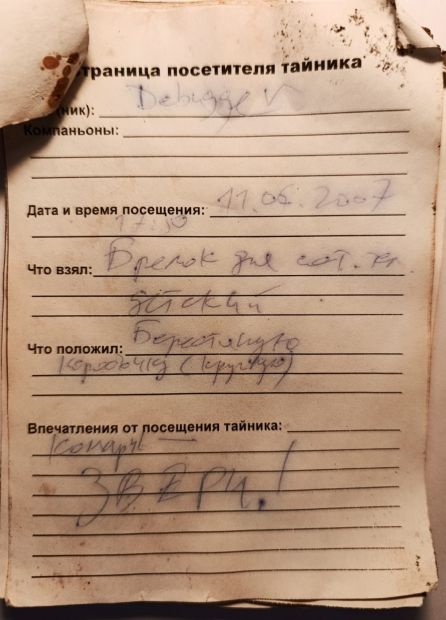 траница посетителя тайника
ник):
Компаньоны:
Дата и время посещения: 11.06.2007
17:30
Что взял: Брелок для сот. тл
детский
Что положил: Берестяную
коробочку (круглую)
Впечатления от посещения тайника:
Комары —
ЗВЕРИ!